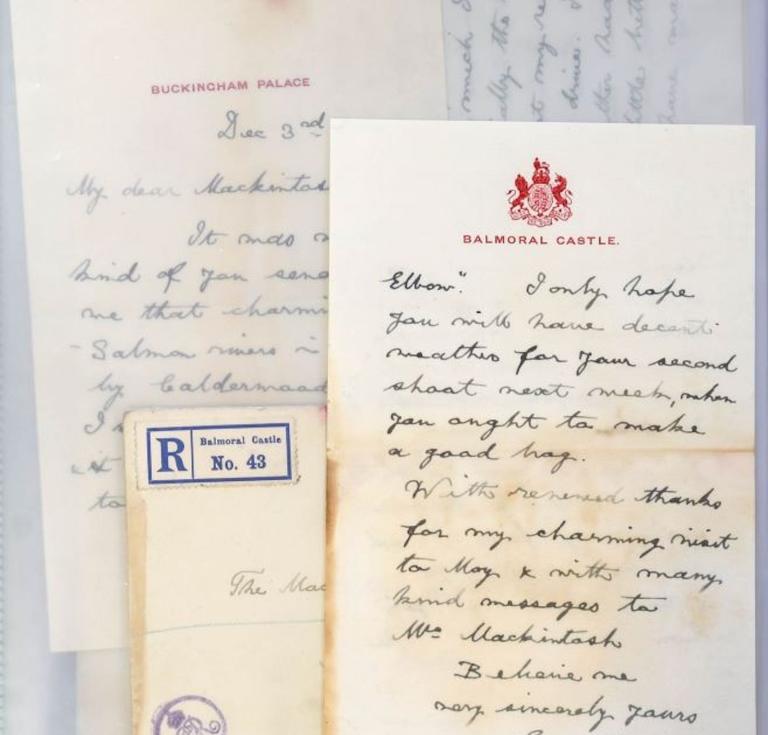 BUCKINGHAM PALACE
Dec 3rd
My dear Mackintos
It was
kind of you send
me that charmi
Salmon rivers
by Calderwood
I
it
to
much
the
my
drive.
little
have
BALMORAL CASTLE.
Elbow". I only hope
you will have decent
weather for your second
shoot next week, when
you ought to make
a good bag.
With renewed thanks
for my charming visit
to Moy & with many
kind messages to
Mrs Mackintosh
Believe me
very sincerely yours
R Balmoral Castle
No. 43
The Mac